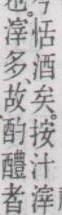 今恬酒矣。按汁滓
也。滓多、故酌醴者